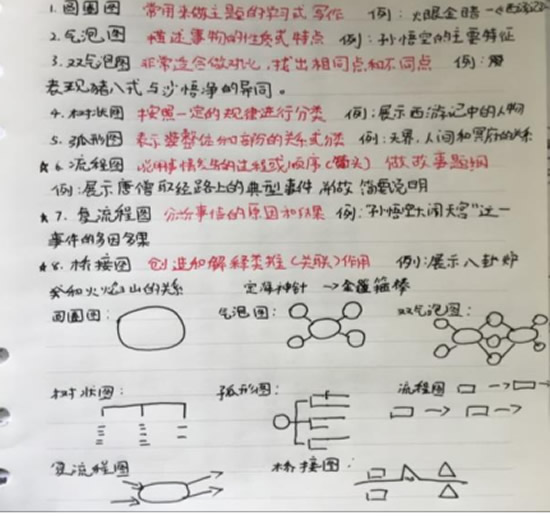 1. 圆圈图 常用来做主题的学习或写作 例：火眼金睛—《西游记》
2. 气泡图 描述事物的性质或特点 例：孙悟空的主要特征
3. 双气泡图 非常适合做对比，找出相同点和不同点 例：用
表现猪八戒与沙悟净的异同。
4. 树状图 按照一定的规律进行分类 例：展示西游记中的人物
5. 弧形图 表示整体和部份的关系或分类 例：天界、人间和冥府的关系
★6. 流程图 说明事情发展的过程或顺序（箭头）做故事题纲
例：展示唐僧取经路上的典型事件 并做简要说明
★7. 复流程图 分析事情的原因和结果 例：“孙悟空大闹天宫”这一
事件的多因多果
★8. 桥接图 创造和解释类推（关联）作用 例：展示八卦炉
和火焰山的关系 定海神针 → 金箍棒
圆圈图： 气泡图： 双气泡图：
树状图： 弧形图： 流程图
复流程图 桥接图：